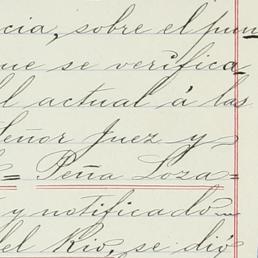 cia, sobre el pun
ue se verifica
l actual á las
Señor Juez y
= Peña Loza=
y notificado
el Rio, se dió